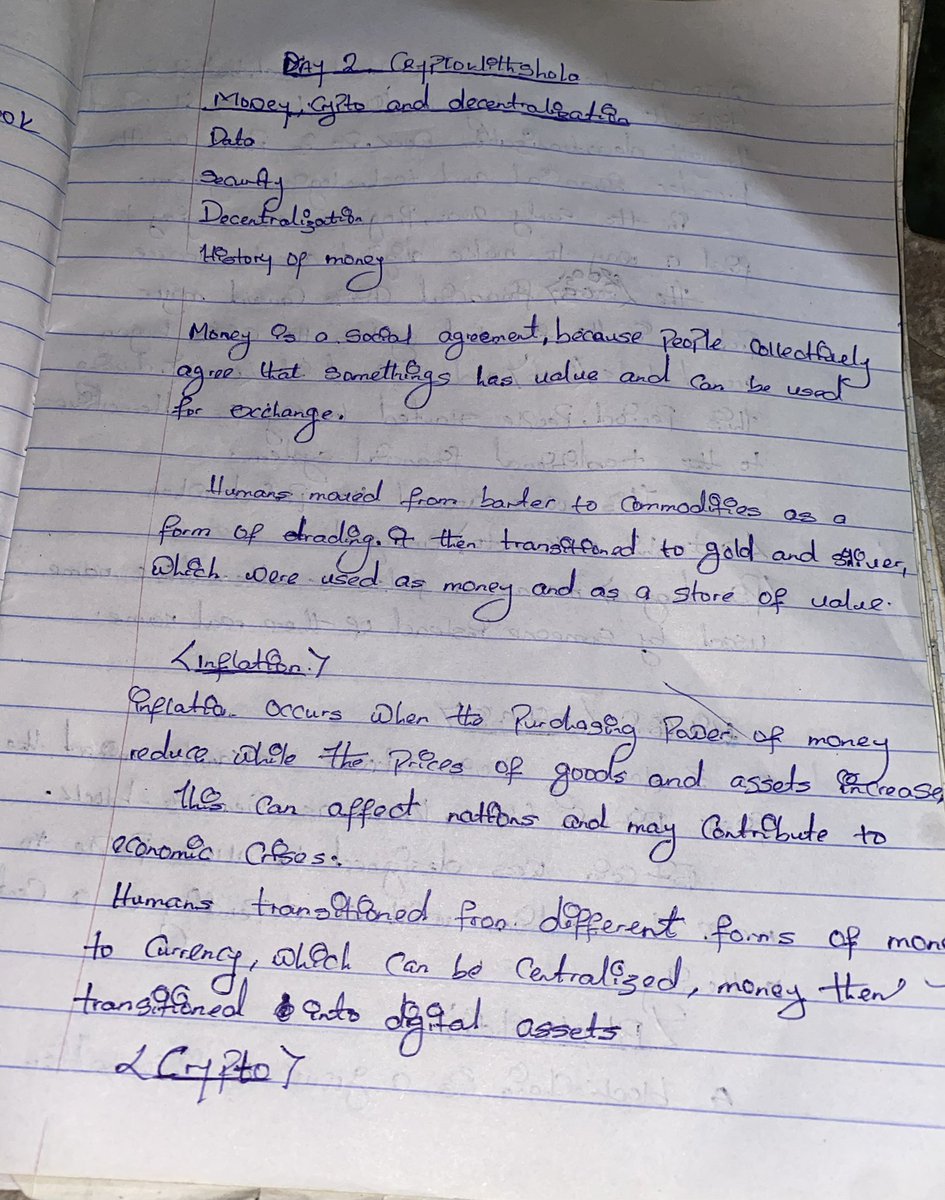 DAY 2 Cryptowithshola
Money, Cypto and decentralization
ok
Data
Security
Decentralization
History of money
Money is a social agreement, because people collectively
agree that somethings has value and can be used
for exchange.
Humans moved from barter to commodities as a
form of trading. It then transitioned to gold and silver,
which were used as money and as a store of value.
<Inflation.>
inflatio. occurs when the Purchasing Power of money
reduce while the prices of goods and assets increase
this can affect nations and may contribute to
economic crises.
Humans transitioned from different forms of mon
to currency, which can be centralized, money then
transitioned into digital assets
<Crypto>